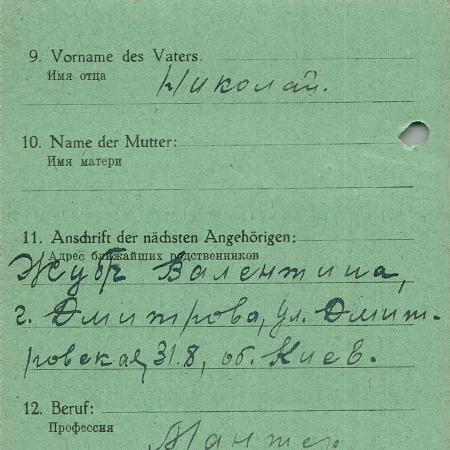 9. Vorname des Vaters:
Имя отца
Николай.
10. Name der Mutter:
Имя матери
11. Anschrift der nächsten Angehörigen:
Адрес ближайших родственников
Жубр Валентина,
г. Дмитрова, ул. Дмит-
ровская, 31.8, об. Киев.
12. Beruf:
Профессия